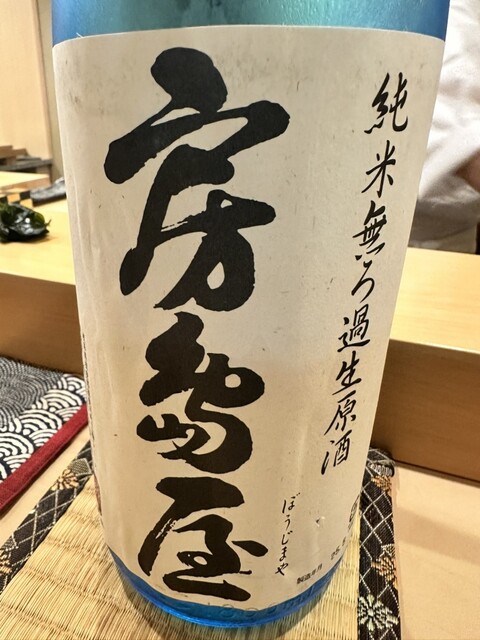 純米無ろ過生原酒
房島屋
ぼうじまや
製造年月